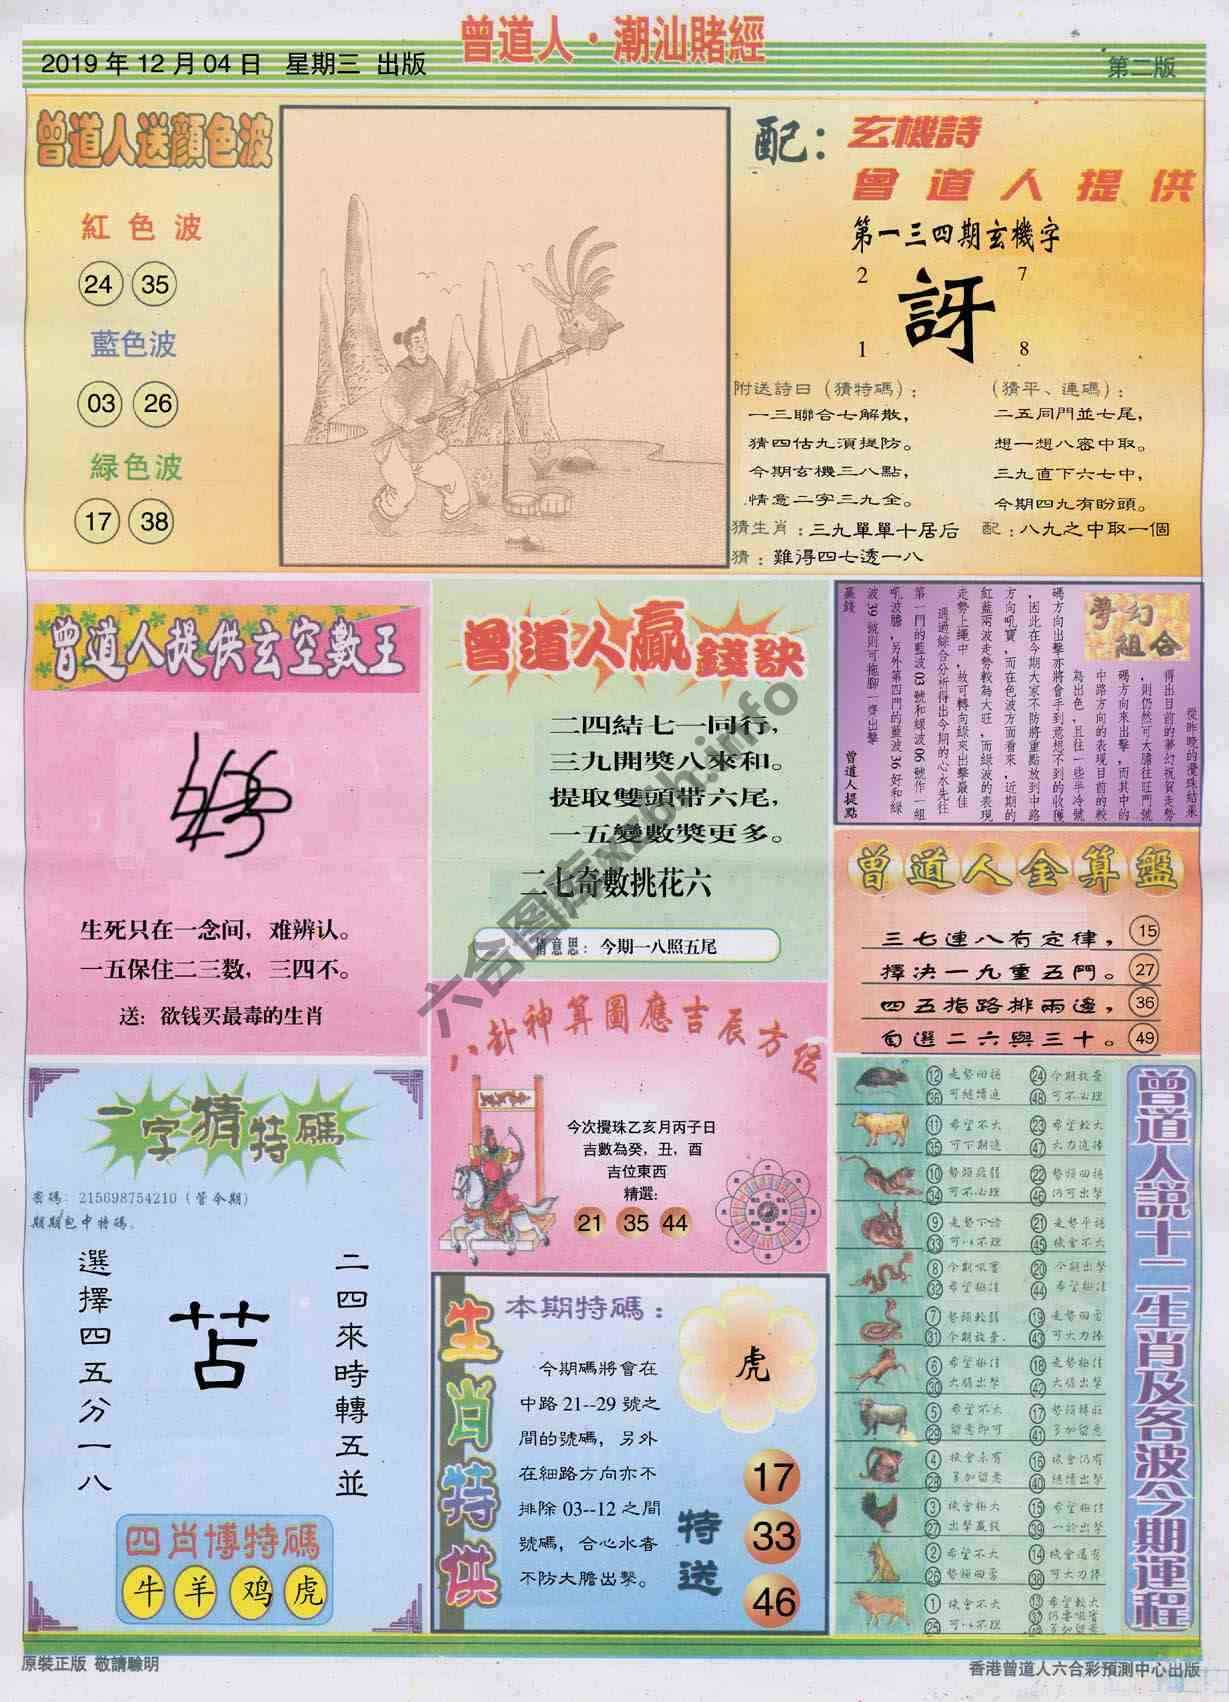 曾道人·潮汕賭經
2019年12月04日 星期三 出版
第二版
曾道人送顔色波
紅色波
24 35
藍色波
03 26
緑色波
17 38
配：玄機詩
曾道人提供
第一三四期玄機字
2 7
訝
1 8
附送詩曰（猜特碼）：
一三聯合七解散，
猜四估九須提防。
今期玄機三八點，
情意二字三九全。
（猜平、連碼）：
二五同門並七尾，
想一想八審中取。
三九直下六七中，
今期四九有盼頭。
猜生肖：三九單單十居后 配：八九之中取一個
猜：難得四七透一八
曾道人提供玄空數王
生死只在一念间，难辨认。
一五保住二三数，三四不。
送：欲钱买最毒的生肖
曾道人贏錢訣
二四結七一同行，
三九開獎八來和。
提取雙頭帶六尾，
一五變數獎更多。
二七奇數挑花六
猜意思：今期一八照五尾
夢幻組合
從昨晚的攪珠結果
得出目前的夢幻祝賀走勢
，則仍然可大膽往旺門號
碼方向來出擊，而其中的
中路方向的表現目前的較
為出色，且往一些半冷號
碼方向出擊亦將會手到意想不到的收穫
，因此在今期大家不防將重點放到中路
方向吼寶，而在色波方面看來，近期的
紅藍兩波走勢較為大旺，而綠波的表現
走勢上繩中，故可轉向綠來出擊最佳
通過綜合分析得出今期的心水先往
第一門的藍波03號和綠波06號作一組
吼波膽，另外第四門的藍波36好和綠
波39號則可拖腳一齊出擊
贏錢
曾道人提點
曾道人金算盤
三七連八有定律， 15
擇決一九重五門。 27
四五指路排兩邊， 36
自選二六與三十。 49
八卦神算圖應吉辰方位
今次攪珠乙亥月丙子日
吉數為癸，丑，酉
吉位東西
精選：
21 35 44
一字猜特碼
密碼：215698754210（管令期）
期期包中特碼。
二四來時轉五並
苫
選擇四五分一八
四肖博特碼
牛 羊 鸡 虎
生肖特供
本期特碼：
虎
今期碼將會在
中路21--29號之
間的號碼，另外
在細路方向亦不
排除03--12之間
號碼，合心水者
不防大膽出擊。
特送
17
33
46
曾道人説十二生肖及各波今期運程
12 36 走勢回揚 可繼續追 24 48 今期放棄 可不必理
11 35 希望不大 可下期追 23 47 希望較大 大力追捧
10 34 勢頭疲弱 可不必理 22 46 勢頭回揚 仍可出擊
9 33 走勢下滑 可以不理 21 45 走勢平穩 機會不大
8 32 今期吸寶 希望極佳 20 44 今期出擊 希望極佳
7 31 勢頭較弱 今期放棄 19 43 走勢回勇 可大力捧
6 30 希望極佳 大膽出擊 18 42 走勢極佳 大膽出擊
5 29 希望不大 留意即可 17 41 勢頭轉旺 多加留意
4 28 機會未有 多加留意 16 40 機會仍有 繼續出擊
3 27 機會極大 出擊贏錢 15 39 希望極佳 一於出擊
2 26 希望不大 勢頭回勇 14 38 機會還有 可大力捧
1 25 機會不大 13 37 49 希望較大
原裝正版 敬請驗明
香港曾道人六合彩預測中心出版
六合图库xz6h.info